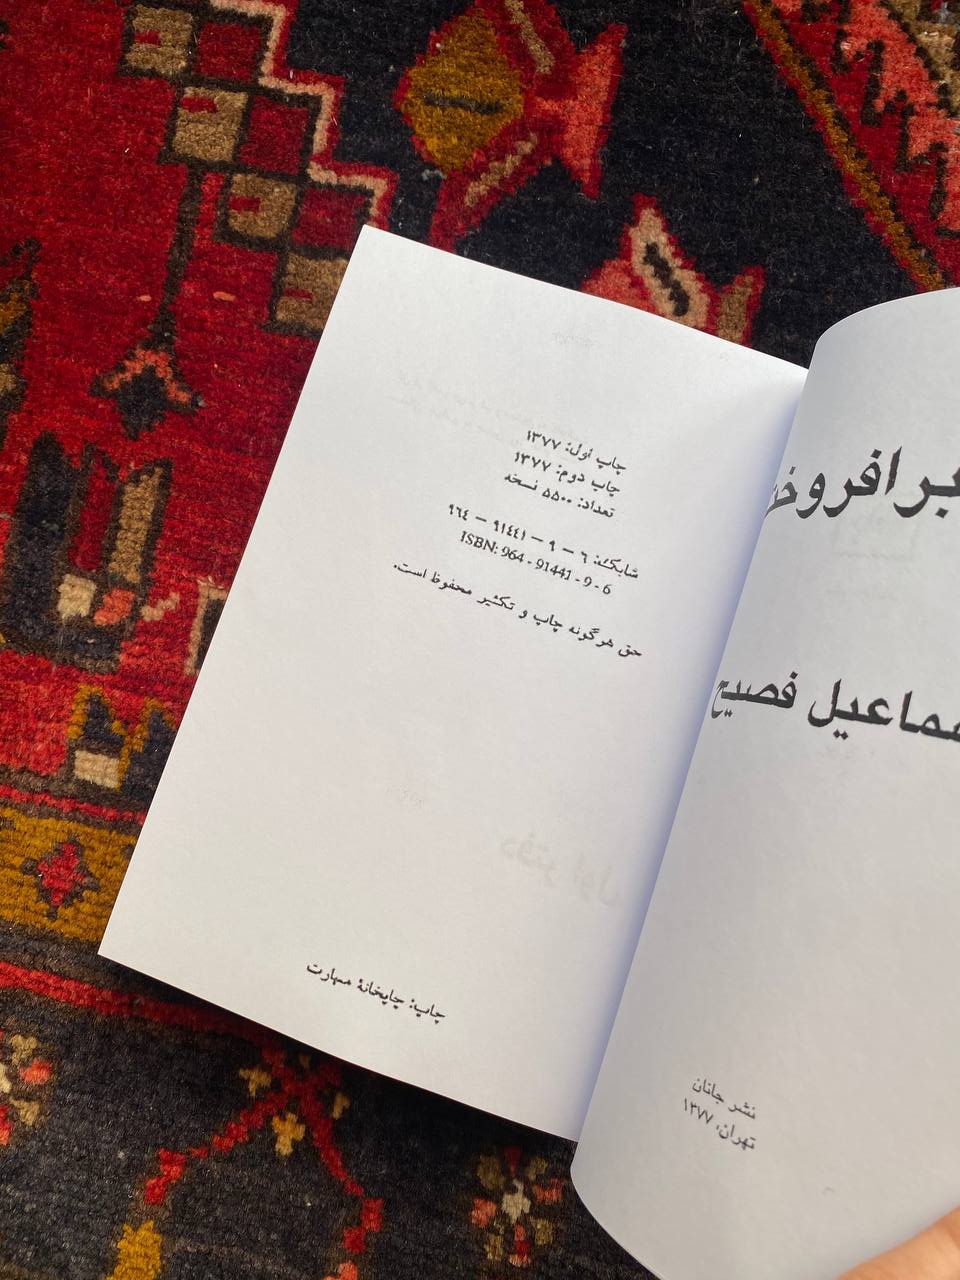 چاپ اول: ۱۳۷۷
چاپ دوم: ۱۳۷۷
تعداد: ۵۵۰۰ نسخه
شابک: ۶ – ۹ – ۹۱۴۴۱ – ۹۶۴
ISBN: 964 - 91441 - 9 - 6
حق هرگونه چاپ و تکثیر محفوظ است.
چاپ: چاپخانهٔ مهارت
فصیح
نشر جانان
تهران، ۱۳۷۷